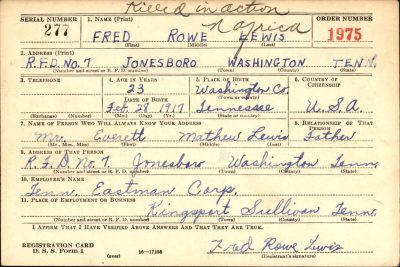 Killed in action
N. Africa
SERIAL NUMBER 1. NAME (Print) ORDER NUMBER
277 FRED ROWE LEWIS 1975
(First) (Middle) (Last)
2. ADDRESS (Print)
R.F.D. No. 7 JONESBORO WASHINGTON TENN.
(Number and street or R. F. D. number) (Town) (County) (State)
3. TELEPHONE 4. AGE IN YEARS 5. PLACE OF BIRTH 6. COUNTRY OF CITIZENSHIP
23 Washington Co.
DATE OF BIRTH (Town or county)
Feb 28 1917 Tennessee U.S.A.
(Exchange) (Number) (Mo.) (Day) (Yr.) (State or country)
7. NAME OF PERSON WHO WILL ALWAYS KNOW YOUR ADDRESS 8. RELATIONSHIP OF THAT PERSON
Mr. Everett Mathew Lewis Father
(Mr., Mrs., Miss) (First) (Middle) (Last)
9. ADDRESS OF THAT PERSON
R.F.D. No. 7. Jonesboro Washington Tenn.
(Number and street or R. F. D. number) (Town) (County) (State)
10. EMPLOYER'S NAME
Tenn. Eastman Corp.
11. PLACE OF EMPLOYMENT OR BUSINESS
Kingsport Sullivan Tenn.
(Number and street or R. F. D. number) (Town) (County) (State)
I AFFIRM THAT I HAVE VERIFIED ABOVE ANSWERS AND THAT THEY ARE TRUE.
REGISTRATION CARD
D. S. S. Form 1 16—17105 Fred Rowe Lewis
(over) (Registrant's signature)